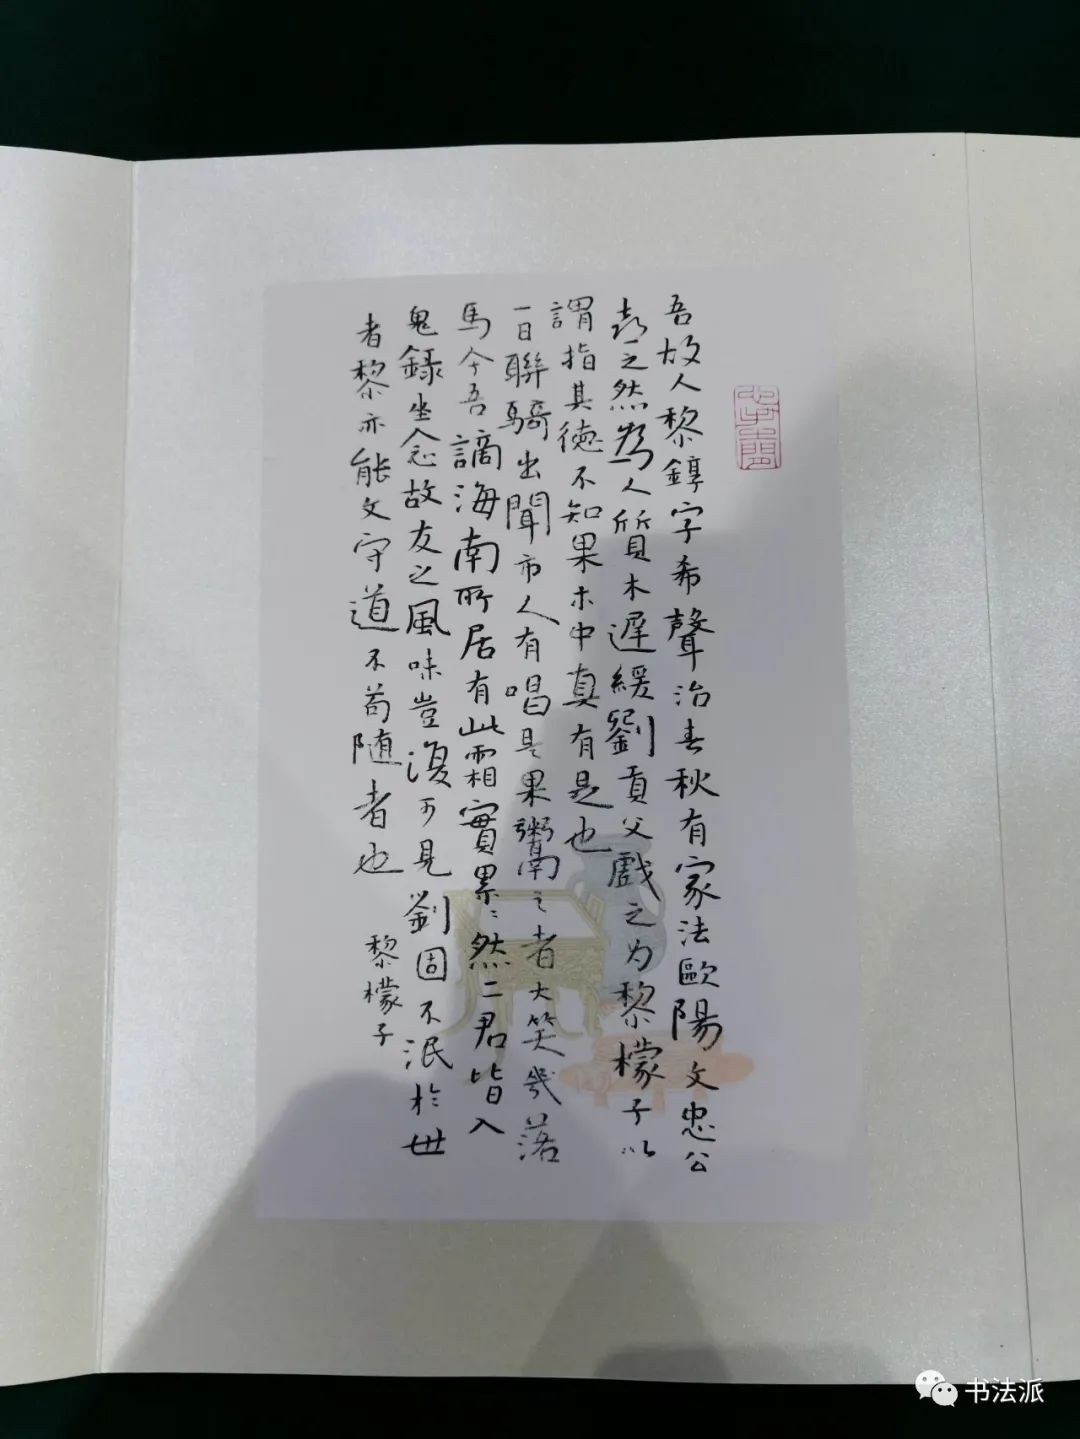 吾故人黎錞字希聲治春秋有家法歐陽文忠公
喜之然為人質木遲緩劉貢父戲之为黎檬子以
謂指其德不知果木中真有是也
一日聯騎出聞市人有唱是果鬻之者大笑幾落
馬今吾謫海南所居有此霜實累〻然二君皆入
鬼錄坐念故友之風味豈復可見劉固不泯於世
者黎亦能文守道不苟随者也
黎檬子
书法派